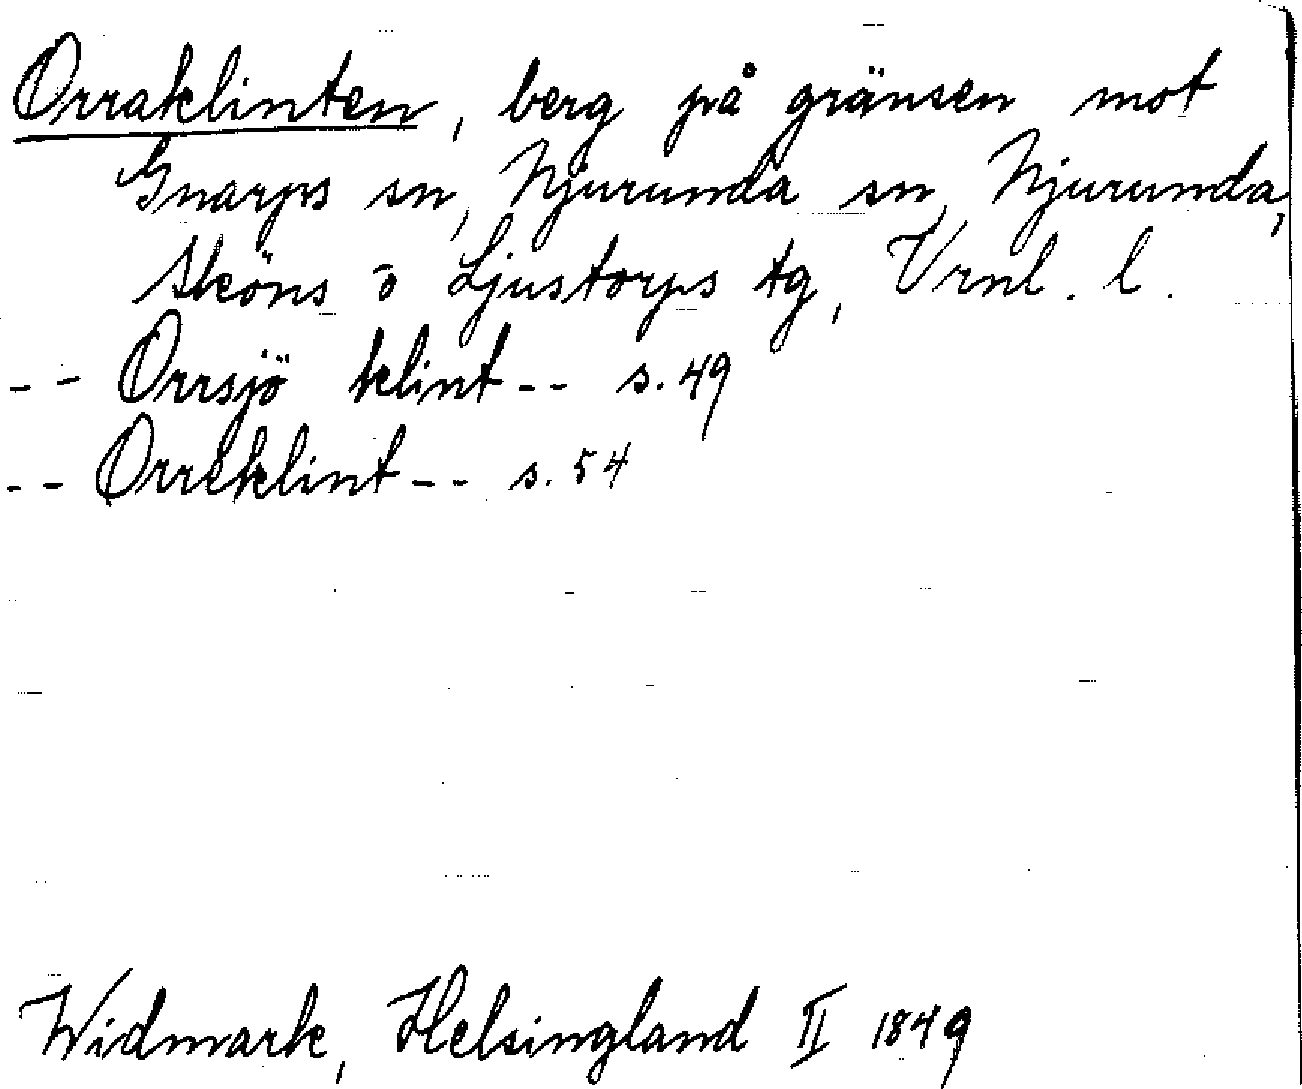 Orraklinten, berg på gränsen mot
Gnarps sn, Njurunda sn, Njurunda,
Sköns o Ljustorps tg, Vrnl. l.
-- Orrsjö klint -- s. 49
-- Orreklint -- s. 54
Widmark, Helsingland II 1849